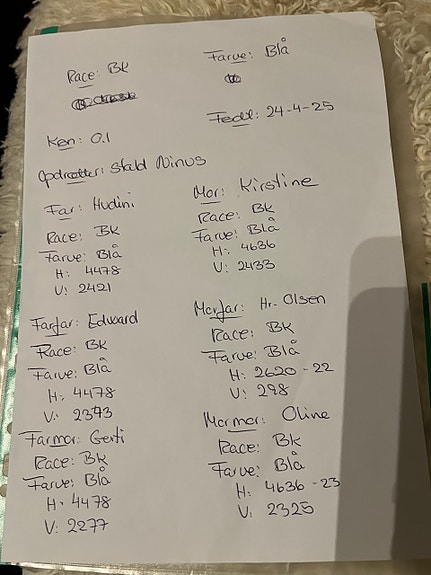 Race: BK
Farve: Blå
Køn: 0.1
Født: 24-4-25
Opdrætter: Stald Ninus
Far: Hudini
Race: BK
Farve: Blå
H: 4478
V: 2421
Mor: Kirstine
Race: BK
Farve: Blå
H: 4636
V: 2433
Farfar: Edward
Race: BK
Farve: Blå
H: 4478
V: 2343
Morfar: Hr. Olsen
Race: BK
Farve: Blå
H: 2620 - 22
V: 298
Farmor: Gerti
Race: BK
Farve: Blå
H: 4478
V: 2277
Mormor: Oline
Race: BK
Farve: Blå
H: 4636 - 23
V: 2325